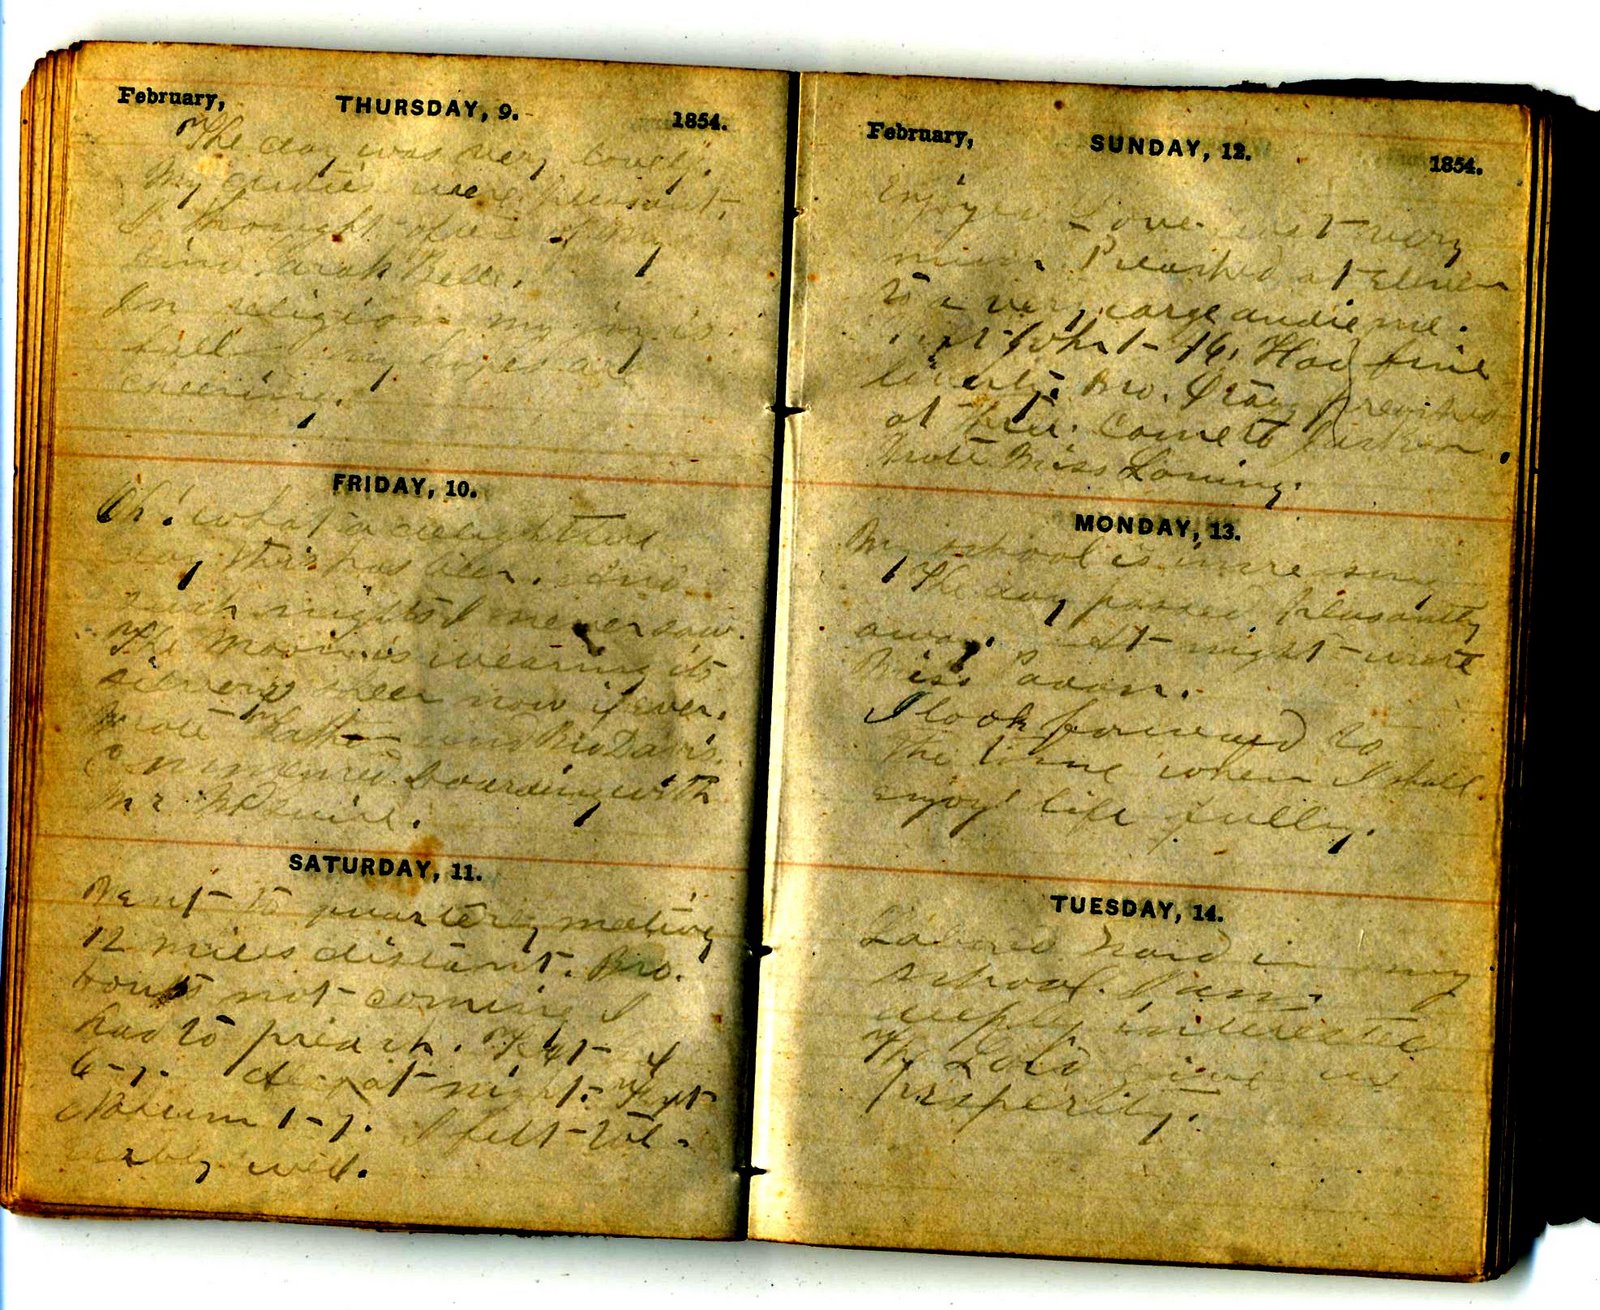 February, THURSDAY, 9. 1854.
The day was very lovely.
My duties were pleasant.
I thought often of my
kind Sarah Belle.
In religion my joy is
full my hopes are
cheering.
FRIDAY, 10.
Oh! what a delightful
day this has been. And
such nights I never saw.
The Moon is wearing its
silvery sheen now if ever.
Wrote Father and Bro Davis.
Commenced boarding with
Mr
SATURDAY, 11.
Went to quarterly meeting
12 miles distant. Bro.
not coming I
had to preach. Text
6-7. at night. Text
Nahum 1-7. I felt tol-
erably well.
February, SUNDAY, 12. 1854.
Enjoyed Love feast very
much. Preached at Eleven
to a very large audience.
Text John 1-16. Had fine
liberty. Bro. preached
at three. Came to
Wrote Miss Loring.
MONDAY, 13.
My school is increasing
The day passed pleasantly
away. At night wrote
Miss
I look forward to
the time when I shall
enjoy life fully.
TUESDAY, 14.
Labored hard in my
school. I am
deeply interested
The Lord give us
prosperity.